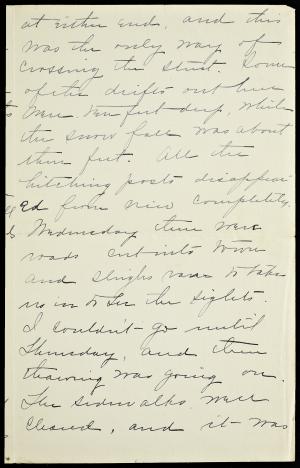 at either end, and this
was the only way of
crossing the street. Some
of the drifts out here
were ten feet deep, while
the snow fall was about
three feet. All the
hitching posts disappear
ed from view completely.
Wednesday there were
roads cut into town
and sleighs ran to take
us in to see the sights.
I couldn't go until
Thursday, and then
thawing was going on.
The sidewalks were
cleared, and it was